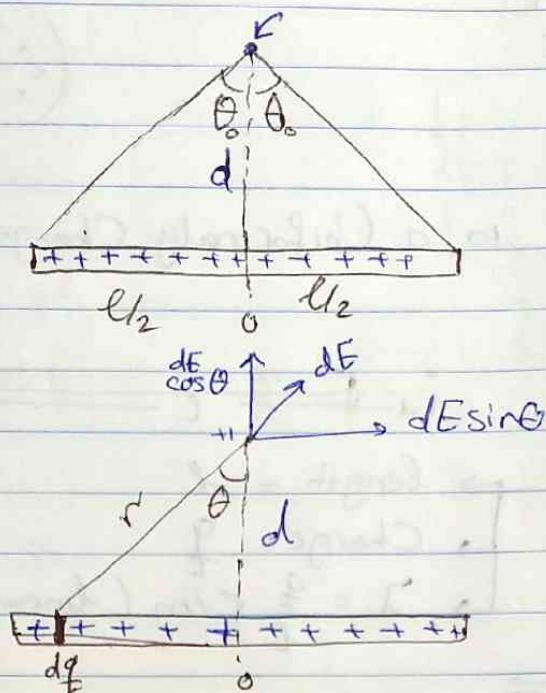 θ₀ θ₀
d
+ + + + + + + + + + + +
l/2 l/2
0
dE cosθ dE
+1 dE sinθ
r θ d
+ + + + + + + + + + +
dq 0